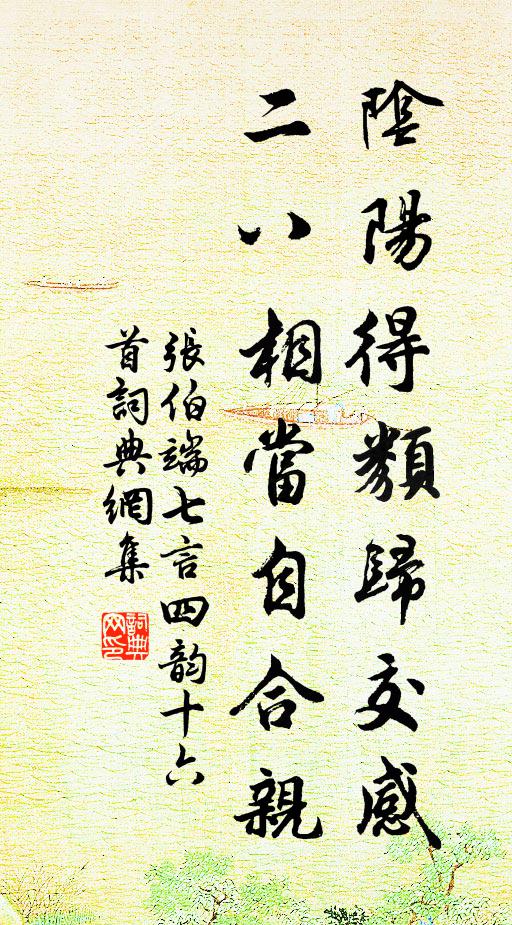 陰陽得類歸交感
二八相當自合親
張伯端七言四韵十六
首詞典網集
詞典
网印